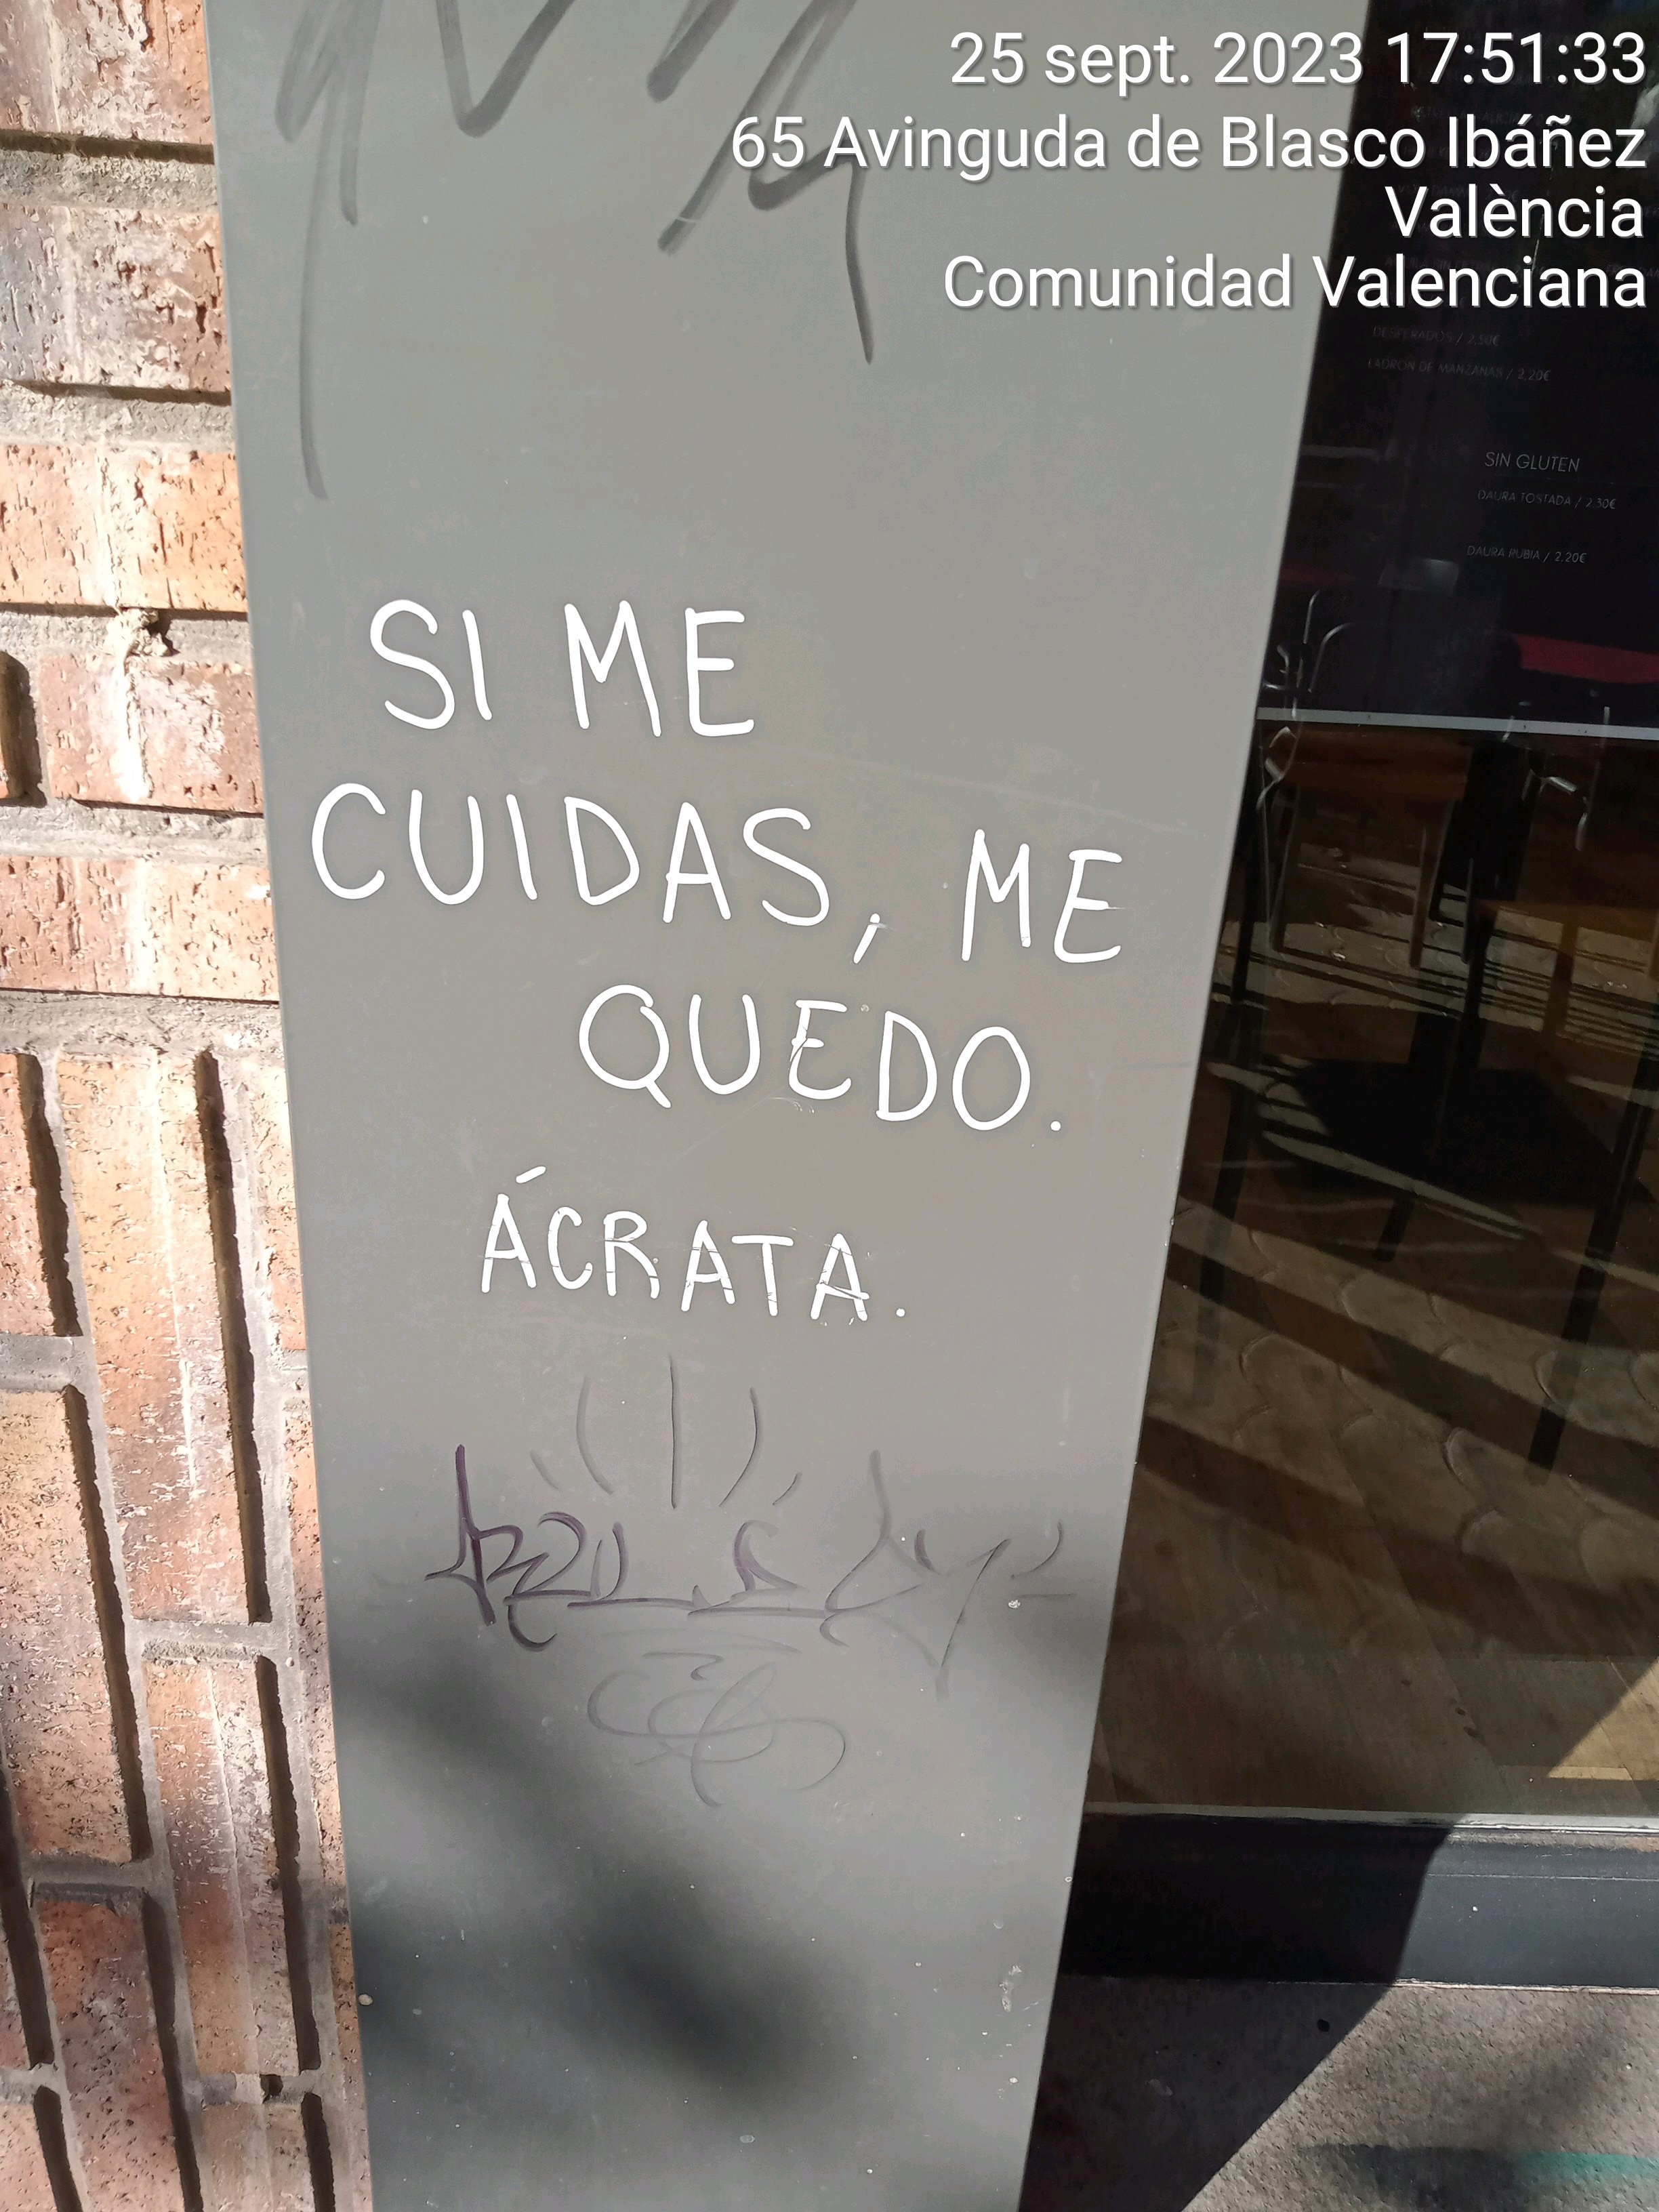 25 sept. 2023 17:51:33
65 Avinguda de Blasco Ibáñez
València
Comunidad Valenciana
DESPERADOS / 2,50€
LADRÓN DE MANZANAS / 2,20€
SIN GLUTEN
DAURA TOSTADA / 2.30€
DAURA RUBIA / 2.20€
SI ME
CUIDAS, ME
QUEDO.
ÁCRATA.